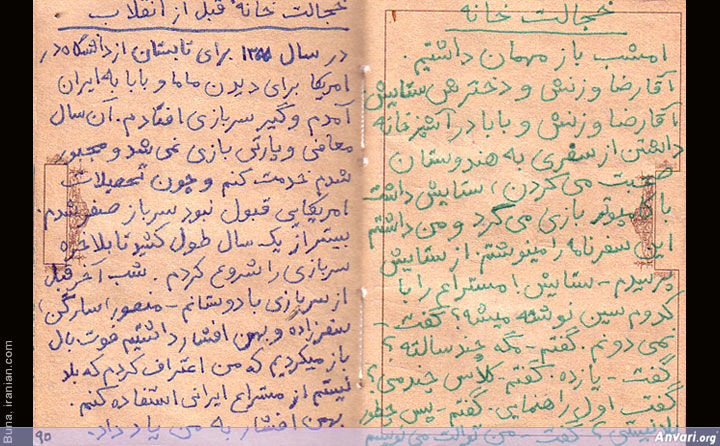 خجالت خانه
امشب باز مهمان داشتیم.
آقارضا و زنش و دخترش ستایش
آقارضا و زنش و بابا در آشپزخانه
داشتن از سفری به هندوستان
صحبت می کردن، ستایش داشت
با کامپیوتر بازی می کرد و من داشتم
این سفرنامه را مینوشتم. از ستایش
پرسیدم - ستایش! مستراح را با
کدوم سین نوشته میشه؟ گفت -
نمی دونم. گفتم - مگه چند سالته؟
گفت - یازده. گفتم - کلاس چندمی؟
گفت اول راهنمایی. گفتم - پس چطور
گفت - توالت می نویسم
خجالت خانه قبل از انقلاب
در سال برای تابستان از دانشگاه در
امریکا برای دیدن ماما و بابا به ایران
آمدم و گیر سربازی افتادم. آن سال
معافی و پارتی بازی نمی شد و مجبور
شدم خدمت کنم و چون تحصیلات
امریکایی قبول نبود سرباز صفر شدم.
بیشتر از یک سال طول کشید تا بلاخره
سربازی را شروع کردم. شب آخر قبل
از سربازی با دوستانم - منصور
سفرزاده و بهمن افشار داشتیم فوت بال
باز میکردیم که من اعتراف کردم که بلد
نیستم از مستراح ایرانی استفاده کنم.
بهمن افشار به من یاد داد.
۹۵
Buna, iranian.com
Anvari.org